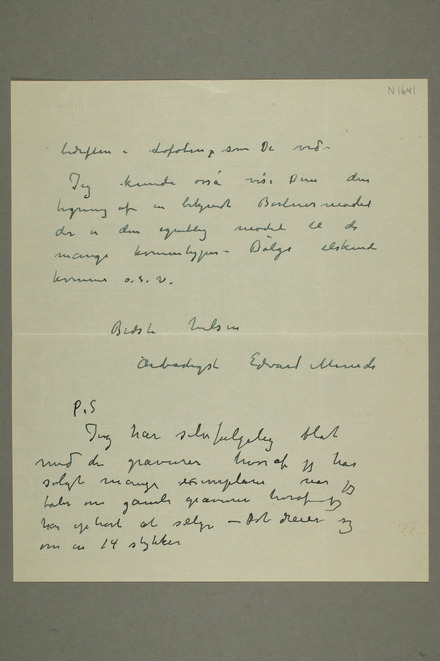 N 1641
i Lofoten, som De ved –
Jeg kunde også vise Dem den
tegning af en Berliner model
der er den model til de
mange – Bølge elskende
kvinne o.s.v.
Bedste hilsen
Ærbødigst Edvard Munch
P.S
Jeg har selvfølgelig blot
med de gravurer hvoraf jeg har
solgt mange exemplarer når jeg
taler om gamle gravurer hvoraf jeg
har ophørt at selge – Det dreier sig
om en 14 stykker